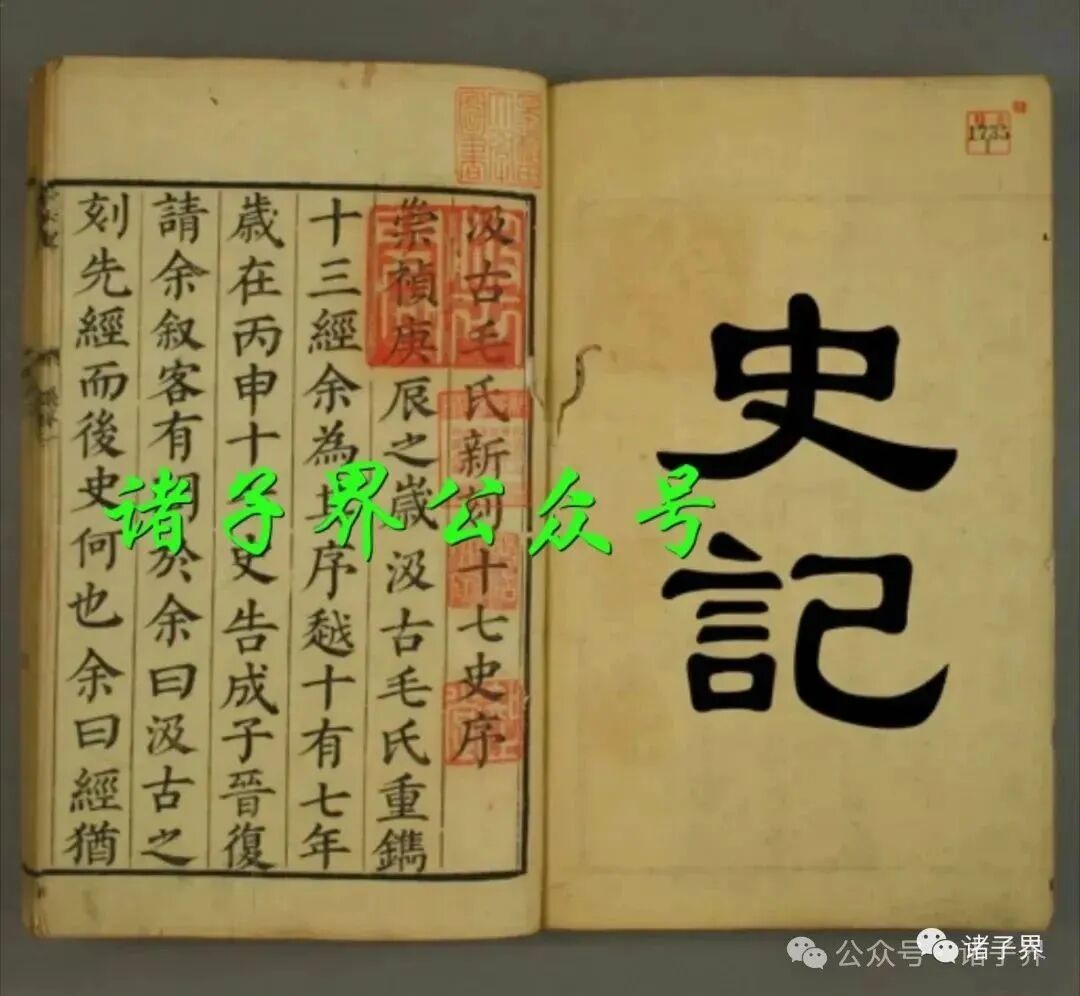 史記
1735
1
圖書
汲古毛氏新刻十七史序
崇禎庚辰之歲汲古毛氏重鐫
十三經余為其序越十有七年
歲在丙申十七史告成子晉復
請余叙客有問於余曰汲古之
刻先經而後史何也余曰經猶
诸子界公众号
公众号
诸子界
诸子界